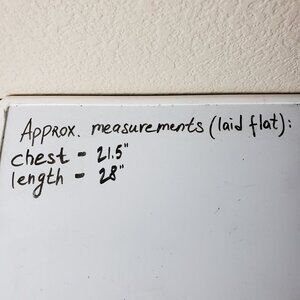 Approx. measurements (laid flat):
chest - 21.5"
length - 28"